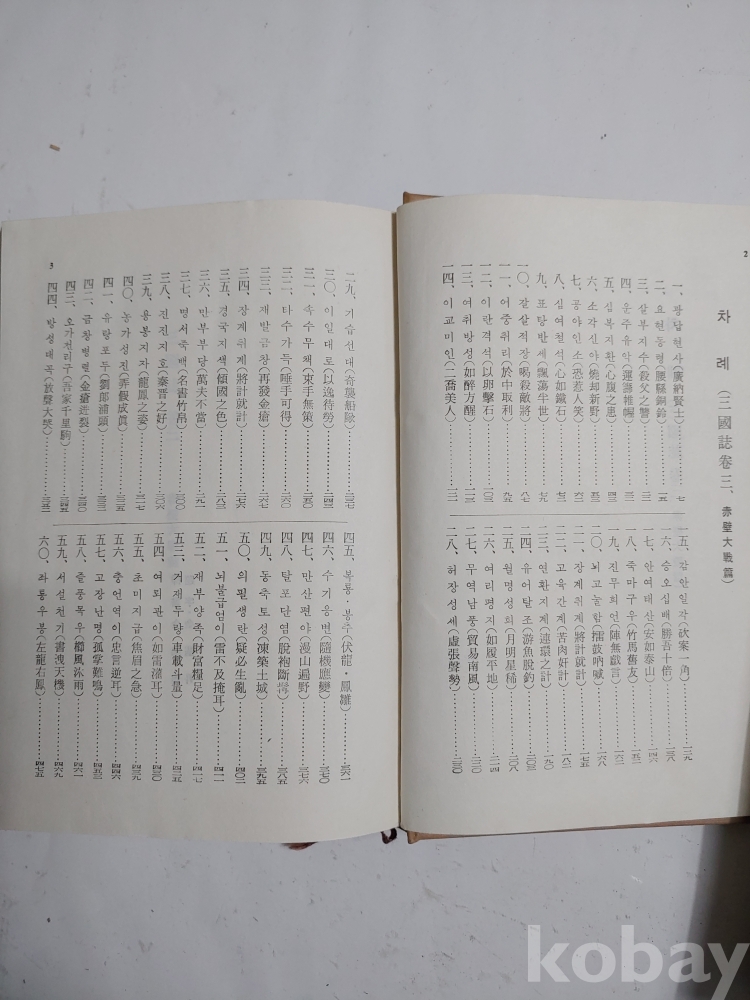 2
차 례 (三國誌卷三、赤壁大戰篇)
一、광납현사(廣納賢士)………七
二、요현동령(腰縣銅鈴)………一五
三、살부지수(殺父之讐)………
四、운주유악(運籌帷幄)………
五、심복지환(心腹之患)………
六、소각신야(燒却新野)………
七、공야인소(恐惹人笑)………
八、심여철석(心如鐵石)………
九、표탕반세(飄蕩半世)………
一〇、갈살적장(喝殺敵將)………
一一、어중취리(於中取利)………九五
一二、이란격석(以卵擊石)………一〇三
一三、여취방성(如醉方醒)………
一四、이교미인(二喬美人)………
一五、감안일각(欣案一角)………
一六、승오십배(勝吾十倍)………
一七、안여태산(安如泰山)………
一八、죽마구우(竹馬舊友)………
一九、진무희언(陣無戱言)………
二〇、뇌고눌함(擂鼓吶喊)………一六八
二一、장계취계(將計就計)………一七五
二二、고육간계(苦肉奸計)………
二三、연환지계(連環之計)………一九〇
二四、유어탈조(游魚脫釣)………
二五、월명성희(月明星稀)………二〇八
二六、여리평지(如履平地)………二一四
二七、무역남풍(貿易南風)………
二八、허장성세(虛張聲勢)………
3
二九、기습선대(奇襲船隊)………
三〇、이일대로(以逸待勞)………
三一、속수무책(束手無策)………二五〇
三二、타수가득(唾手可得)………
三三、재발금창(再發金瘡)………二六七
三四、장계취계(將計就計)………二七六
三五、경국지색(傾國之色)………
三六、만부부당(萬夫不當)………二九一
三七、명서죽백(名書竹帛)………三〇〇
三八、진진지호(秦晋之好)………三〇六
三九、용봉지자(龍鳳之姿)………三一七
四〇、농가성진(弄假成眞)………
四一、유랑포두(劉郎浦頭)………
四二、금창병렬(金瘡迸裂)………三四〇
四三、오가천리구(吾家千里駒)………三四五
四四、방성대곡(放聲大哭)………
四五、복룡·봉추(伏龍·鳳雛)………三六一
四六、수기응변(隨機應變)………三七〇
四七、만산편야(漫山遍野)………
四八、탈포단염(脫袍斷髥)………三八五
四九、동축토성(凍築土城)………三九五
五〇、의필생란(疑必生亂)………四〇二
五一、뇌불급엄이(雷不及掩耳)………四一一
五二、재부양족(財富糧足)………四一七
五三、거재두량(車載斗量)………四二五
五四、여뢰관이(如雷灌耳)………四三〇
五五、초미지급(焦眉之急)………四三九
五六、충언역이(忠言逆耳)………四四六
五七、고장난명(孤掌難鳴)………四五三
五八、즐풍목우(櫛風沐雨)………四六一
五九、서설천기(書洩天機)………四六九
六〇、좌룡우봉(左龍右鳳)………四七五
kobay